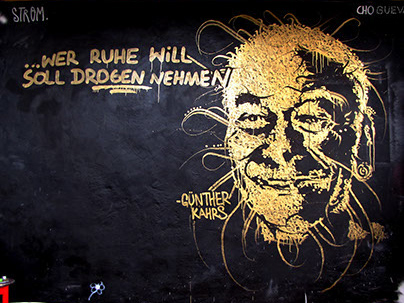 STRÖM.
CHO GUEV
...WER RUHE WILL
SOLL DROGEN NEHMEN
-GÜNTHER
KAHRS